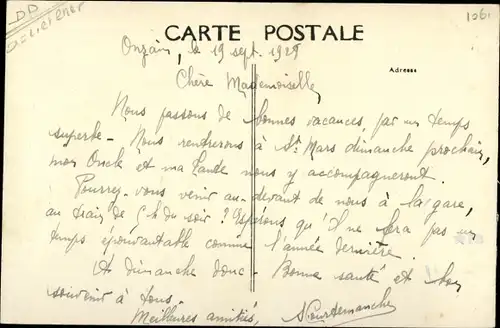 CARTE POSTALE
1061
Onzain, le 19 sept. 1929
Adresse
Chère Mademoiselle,
Nous passons de bonnes vacances, par un temps
superbe - Nous rentrerons à St Mars dimanche prochain,
mon Oncle et ma Tante nous y accompagneront.
Pourrez-vous venir au-devant de nous à la gare,
au train de 5 h du soir ? Espérons qu'il ne fera pas un
temps épouvantable comme l'année dernière.
A dimanche donc - Bonne santé et bon
souvenir à tous.
Meilleures amitiés,